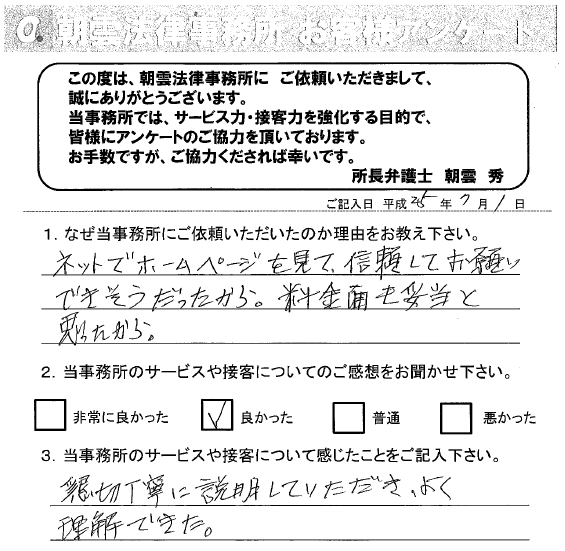 朝雲法律事務所 お客様アンケート
この度は、朝雲法律事務所に ご依頼いただきまして、
誠にありがとうございます。
当事務所では、サービス力・接客力を強化する目的で、
皆様にアンケートのご協力を頂いております。
お手数ですが、ご協力くだされば幸いです。
所長弁護士 朝雲 秀
ご記入日 平成 25 年 7 月 1 日
1. なぜ当事務所にご依頼いただいたのか理由をお教え下さい。
ネットでホームページを見て、信頼してお願い
できそうだったから。料金面も妥当と
思ったから。
2. 当事務所のサービスや接客についてのご感想をお聞かせ下さい。
非常に良かった 良かった 普通 悪かった
3. 当事務所のサービスや接客について感じたことをご記入下さい。
親切丁寧に説明していただき、よく
理解できた。